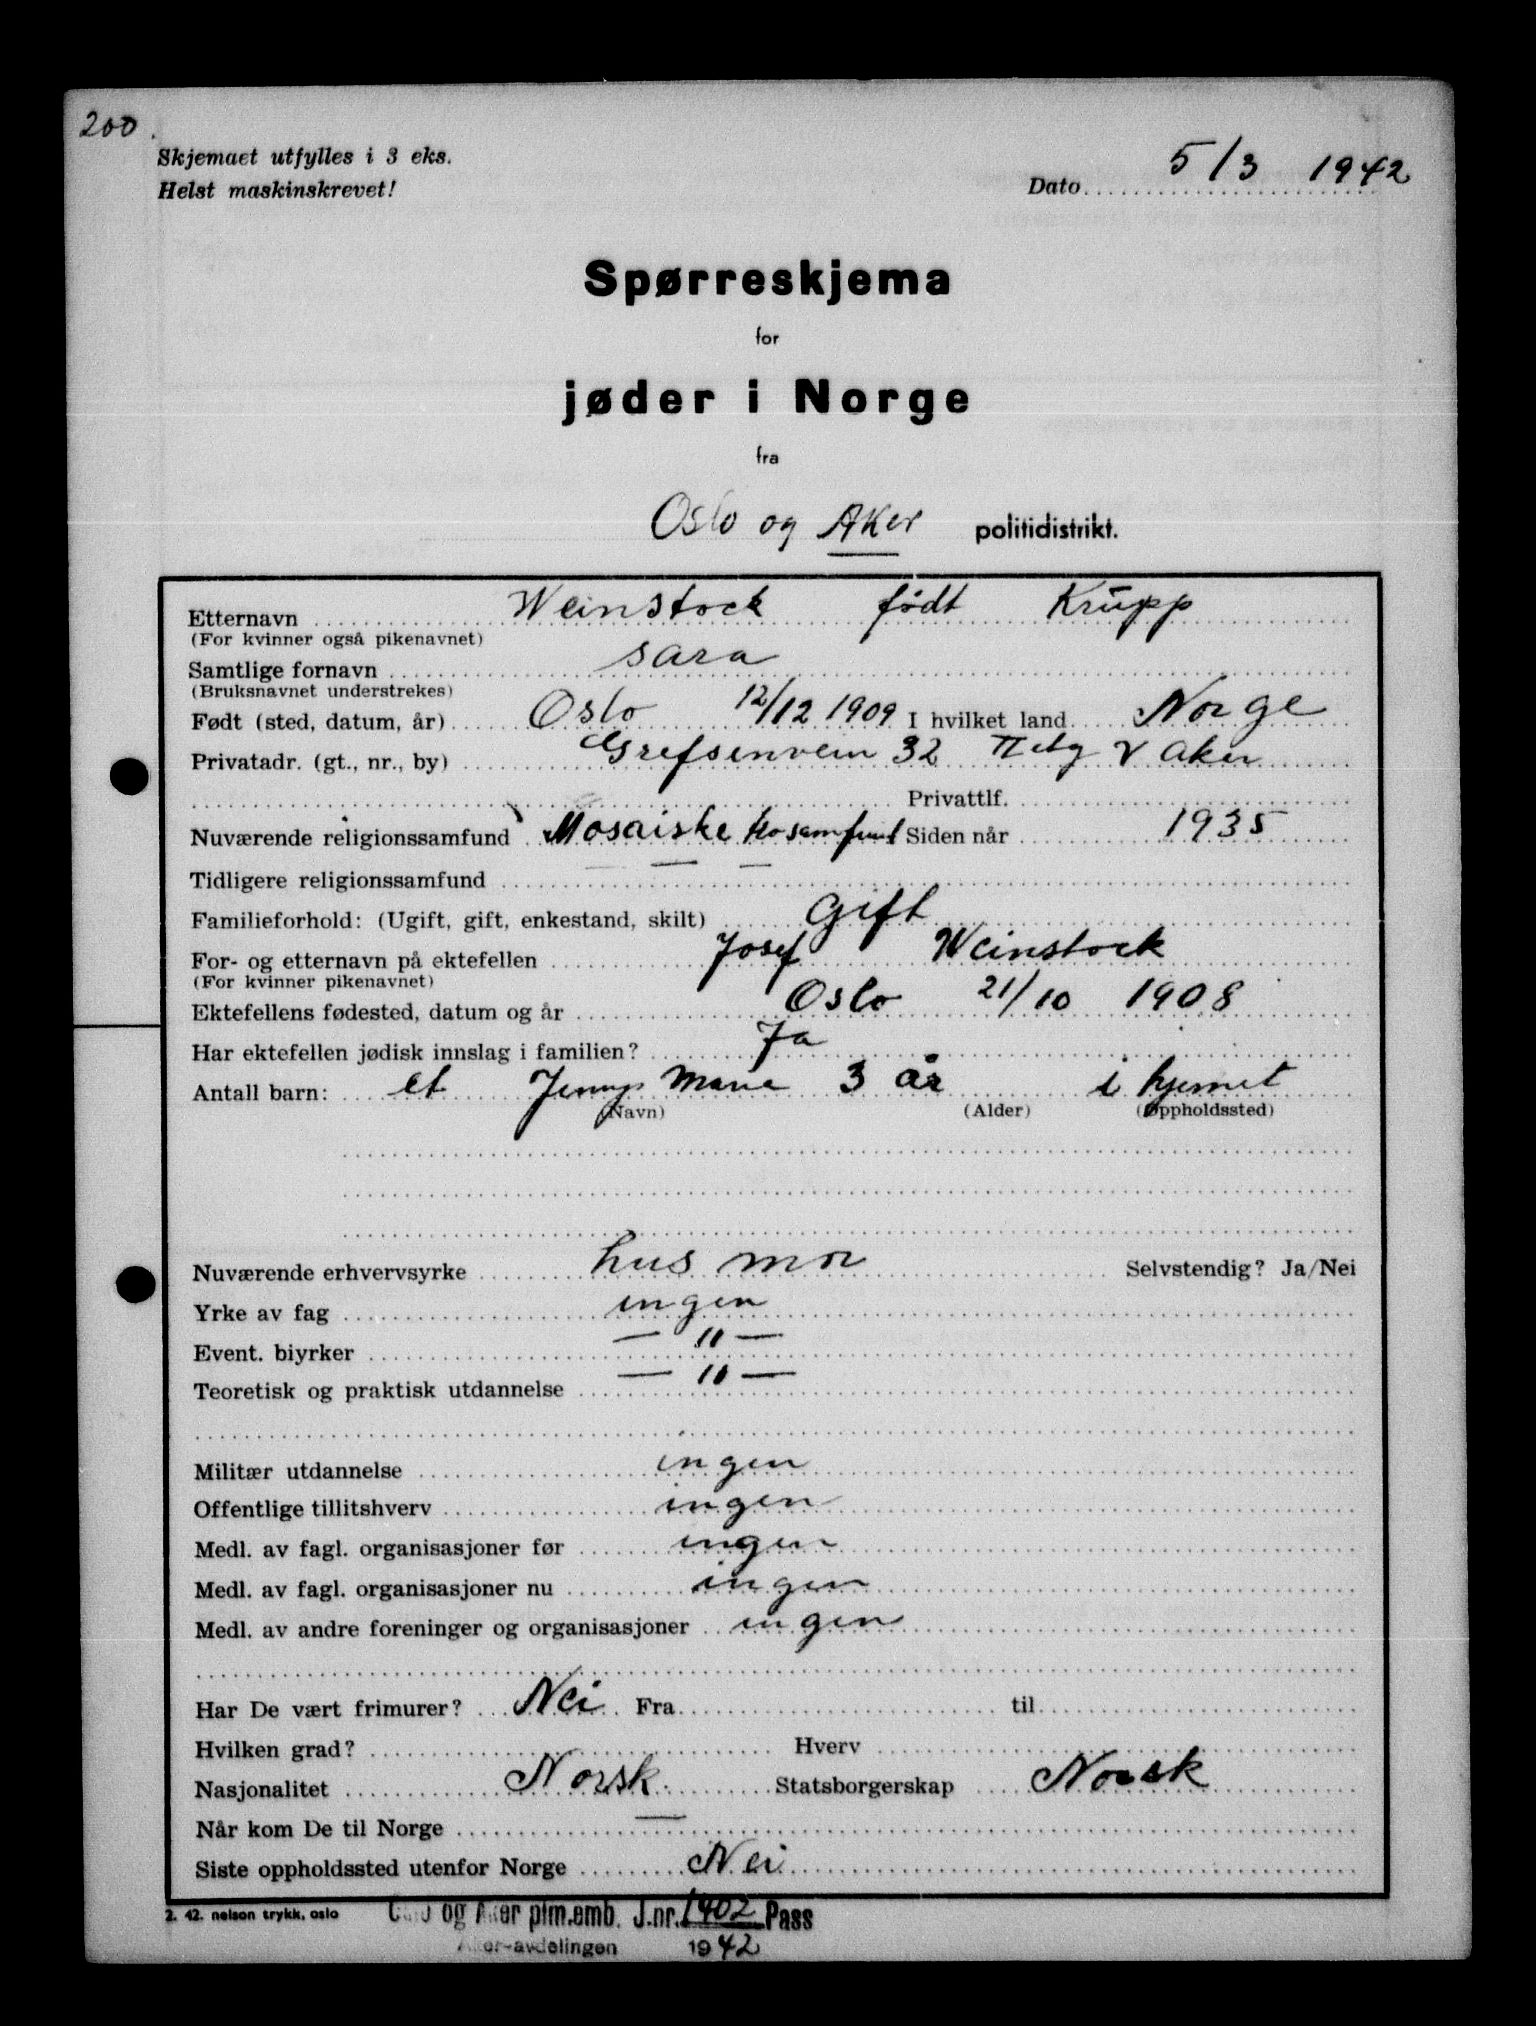 200
Skjemaet utfylles i 3 eks.
Helst maskinskrevet!
Dato 5/3 1942
Spørreskjema
for
jøder i Norge
fra
Oslo og Aker politidistrikt.
Etternavn Weinstock født Krupp
(For kvinner også pikenavnet)
Samtlige fornavn Sara
(Bruksnavnet understrekes)
Født (sted, datum, år) Oslo 12/12 1909 I hvilket land Norge
Privatadr. (gt., nr., by) Grefsenvein 32 V Aker
Privattlf.
Nuværende religionssamfund Mosaiske trosamfund Siden når 1935
Tidligere religionssamfund
Familieforhold: (Ugift, gift, enkestand, skilt) Gift
For- og etternavn på ektefellen Josef Weinstock
(For kvinner pikenavnet)
Ektefellens fødested, datum og år Oslo 21/10 1908
Har ektefellen jødisk innslag i familien? Ja
Antall barn: et Jenny Marie 3 år i hjemet
(Navn) (Alder) (Oppholdssted)
Nuværende erhvervsyrke hus mor Selvstendig? Ja/Nei
Yrke av fag ingen
Event. biyrker — " —
Teoretisk og praktisk utdannelse — " —
Militær utdannelse ingen
Offentlige tillitshverv ingen
Medl. av fagl. organisasjoner før ingen
Medl. av fagl. organisasjoner nu ingen
Medl. av andre foreninger og organisasjoner ingen
Har De vært frimurer? Nei Fra til
Hvilken grad? Hverv
Nasjonalitet Norsk. Statsborgerskap Norsk
Når kom De til Norge —
Siste oppholdssted utenfor Norge Nei
2. 42. nelson trykk, oslo
Oslo og Aker plm.emb. J.nr. 1402 Pass
Aker-avdelingen 1942